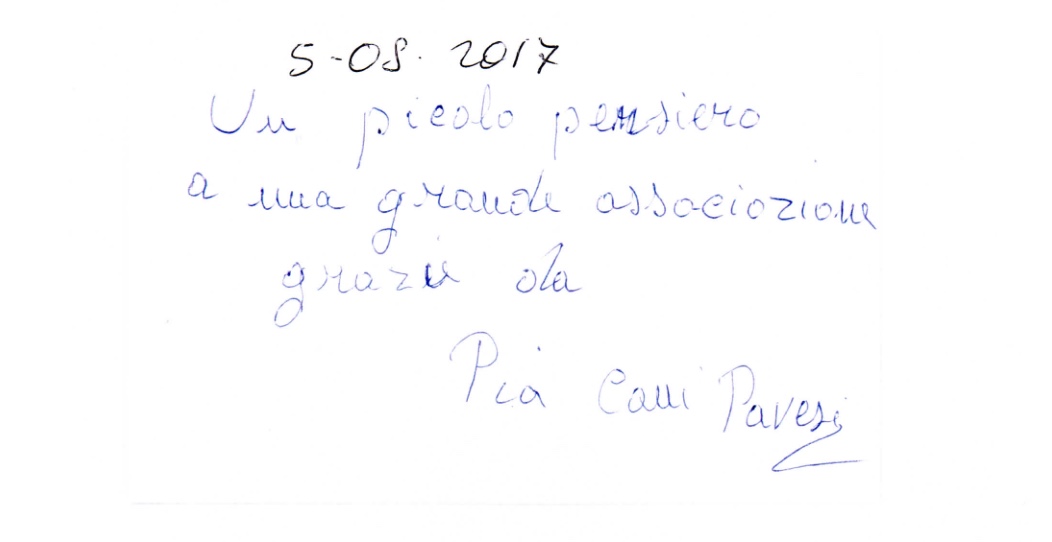 5-08. 2017
Un picolo pensiero
a una grande associazione
grazie da
Pia Cani Pavesi